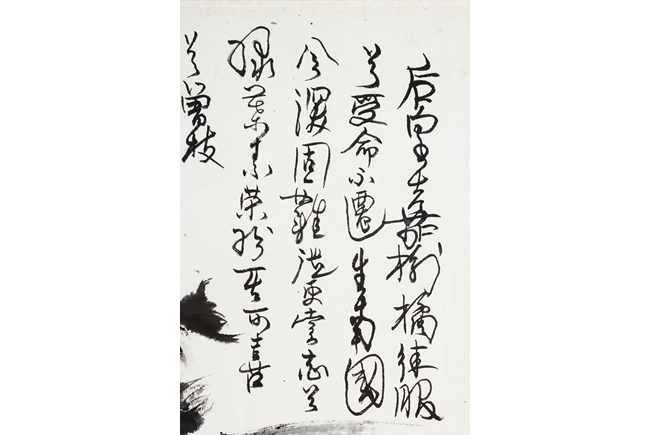 后皇嘉樹橘徠服
兮受命不遷生南國
兮深固難徙更壹志兮
綠葉素榮紛其可喜
兮曾枝